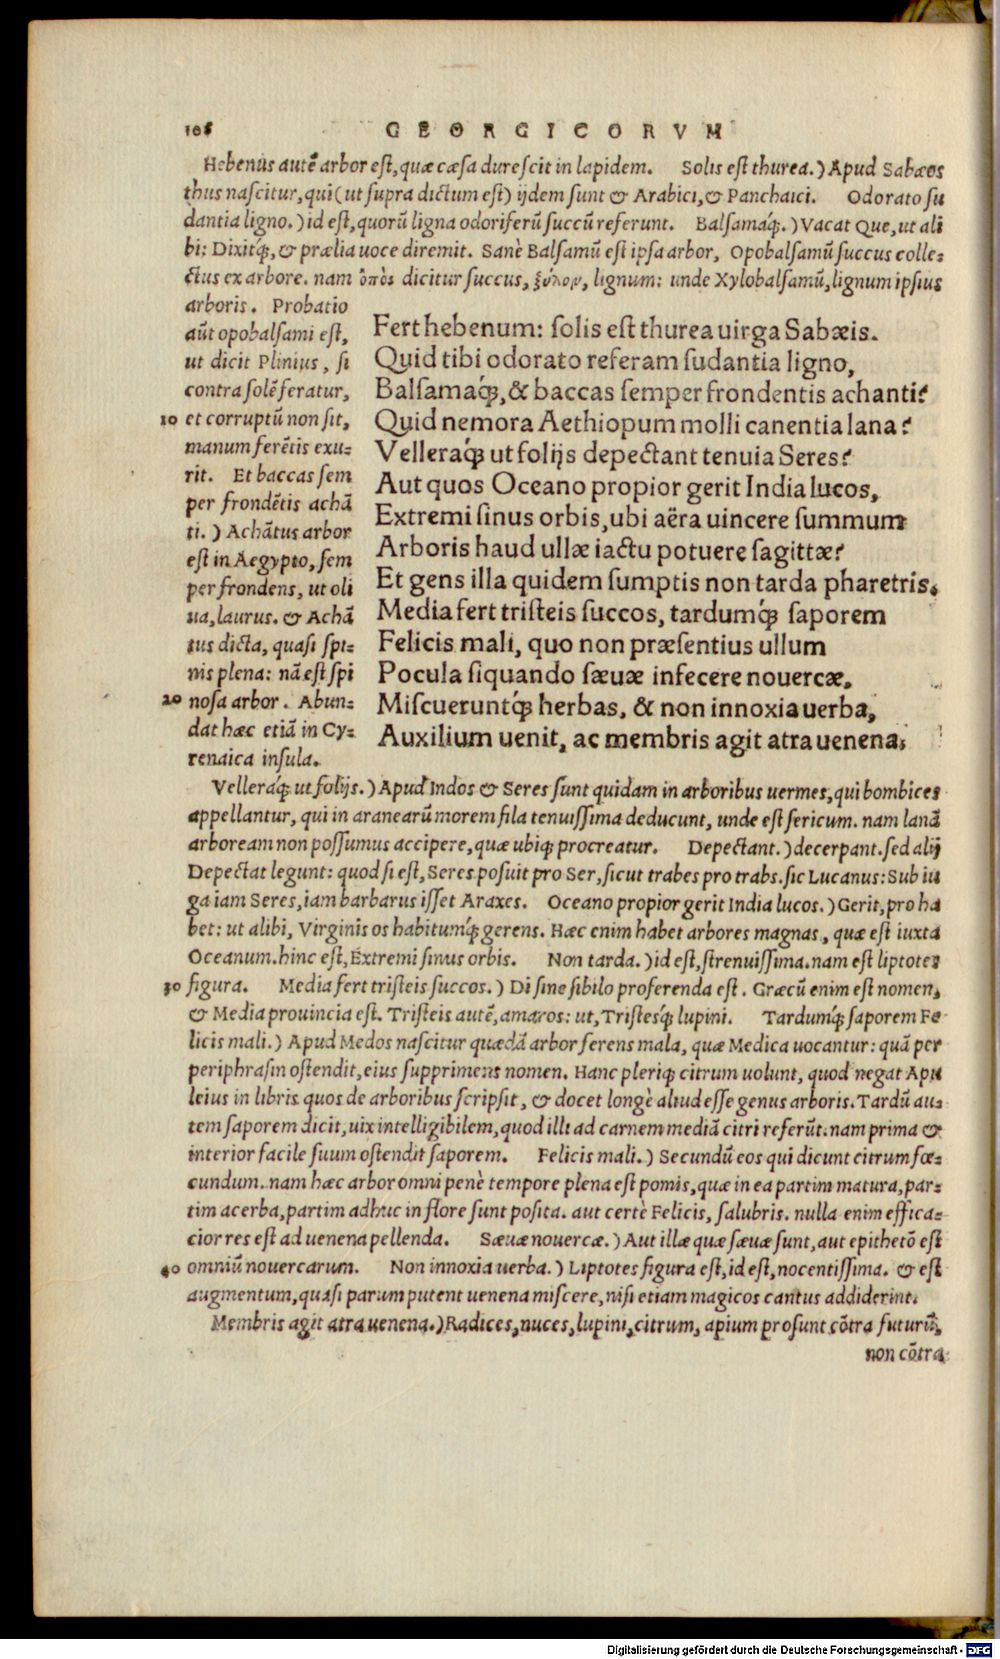 106 GEORGICORVM
Hebenus autē arbor est, quæ cæsa durescit in lapidem. Solis est thurea.) Apud Sabæos
thus nascitur, qui (ut supra dictum est) ijdem sunt & Arabici, & Panchaici. Odorato su
dantia ligno.) id est, quorū ligna odoriferū succū referunt. Balsamaq́;.) Vacat Que, ut ali
bi: Dixitq́;, & prælia uoce diremit. Sanè Balsamū est ipsa arbor, Opobalsamū succus colle-
ctus ex arbore. nam ὀπὸς dicitur succus, ξύλον, lignum: unde Xylobalsamū, lignum ipsius
arboris. Probatio
aūt opobalsami est,
ut dicit Plinius, si
contra solē feratur,
10 et corruptū non sit,
manum ferētis exu-
rit. Et baccas sem
per frondētis achā
ti.) Achātus arbor
est in Aegypto, sem
per frondens, ut oli
ua, laurus. & Achā
tus dicta, quasi spi-
nis plena: nā est spi
20 nosa arbor. Abun-
dat hæc etiā in Cy-
renaica insula.
Fert hebenum: solis est thurea uirga Sabæis.
Quid tibi odorato referam sudantia ligno,
Balsamaq́;, & baccas semper frondentis achanti?
Quid nemora Aethiopum molli canentia lana?
Velleraq́; ut folijs depectant tenuia Seres?
Aut quos Oceano propior gerit India lucos,
Extremi sinus orbis, ubi aëra uincere summum
Arboris haud ullæ iactu potuere sagittæ?
Et gens illa quidem sumptis non tarda pharetris.
Media fert tristeis succos, tardumq́; saporem
Felicis mali, quo non præsentius ullum
Pocula siquando sæuæ infecere nouercæ,
Miscueruntq́; herbas, & non innoxia uerba,
Auxilium uenit, ac membris agit atra uenena.
Velleraq́; ut folijs.) Apud Indos & Seres sunt quidam in arboribus uermes, qui bombices
appellantur, qui in aranearū morem fila tenuissima deducunt, unde est sericum. nam lanā
arboream non possumus accipere, quæ ubiq; procreatur. Depectant.) decerpant. sed alij
Depectat legunt: quod si est, Seres posuit pro Ser, sicut trabes pro trabs. sic Lucanus: Sub iu
ga iam Seres, iam barbarus isset Araxes. Oceano propior gerit India lucos.) Gerit, pro ha
bet: ut alibi, Virginis os habitumq́; gerens. Hæc enim habet arbores magnas, quæ est iuxta
Oceanum. hinc est, Extremi sinus orbis. Non tarda.) id est, strenuissima. nam est liptotes
30 figura. Media fert tristeis succos.) Di sine sibilo proferenda est. Græcū enim est nomen,
& Media prouincia est. Tristeis autē, amaros: ut, Tristesq́; lupini. Tardumq́; saporem Fe
licis mali.) Apud Medos nascitur quædā arbor ferens mala, quæ Medica uocantur: quā per
periphrasin ostendit, eius supprimens nomen. Hanc pleriq; citrum uolunt, quod negat Apu
leius in libris quos de arboribus scripsit, & docet longè aliud esse genus arboris. Tardū au-
tem saporem dicit, uix intelligibilem, quod illi ad carnem mediā citri referūt. nam prima &
interior facile suum ostendit saporem. Felicis mali.) Secundū eos qui dicunt citrum fœ-
cundum. nam hæc arbor omni penè tempore plena est pomis, quæ in ea partim matura, par-
tim acerba, partim adhuc in flore sunt posita. aut certè Felicis, salubris. nulla enim effica-
cior res est ad uenena pellenda. Sæuæ nouercæ.) Aut illæ quæ sæuæ sunt, aut epithetō est
40 omniū nouercarum. Non innoxia uerba.) Liptotes figura est, id est, nocentissima. & est
augmentum, quasi parum putent uenena miscere, nisi etiam magicos cantus addiderint.
Membris agit atra uenena.) Radices, nuces, lupini, citrum, apium prosunt cōtra futurū,
non cōtra
Digitalisierung gefördert durch die Deutsche Forschungsgemeinschaft - DFG